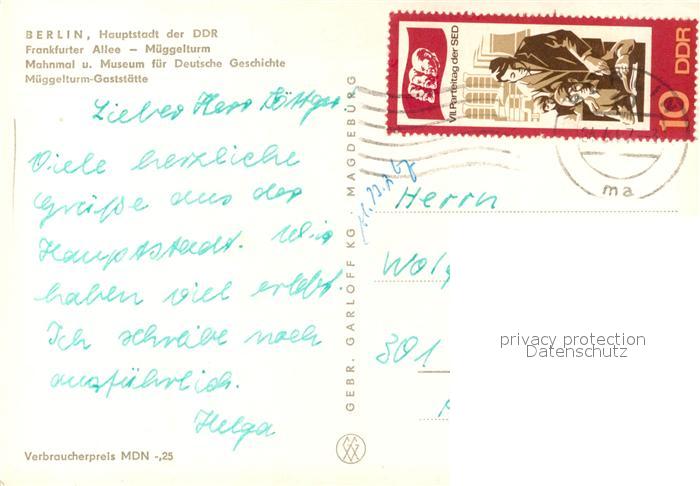 BERLIN, Hauptstadt der DDR
Frankfurter Allee – Müggelturm
Mahnmal u. Museum für Deutsche Geschichte
Müggelturm-Gaststätte
Lieber Herr Böttger.
Viele herzliche
Grüße aus der
Hauptstadt. Wir
haben viel erlebt.
Ich schreibe noch
ausführlich.
Helga
Verbraucherpreis MDN -,25
GEBR. GARLOFF KG MAGDEBURG
VII. Parteitag der SED
10 DDR
ma
Herrn
Wol
301
privacy protection
Datenschutz